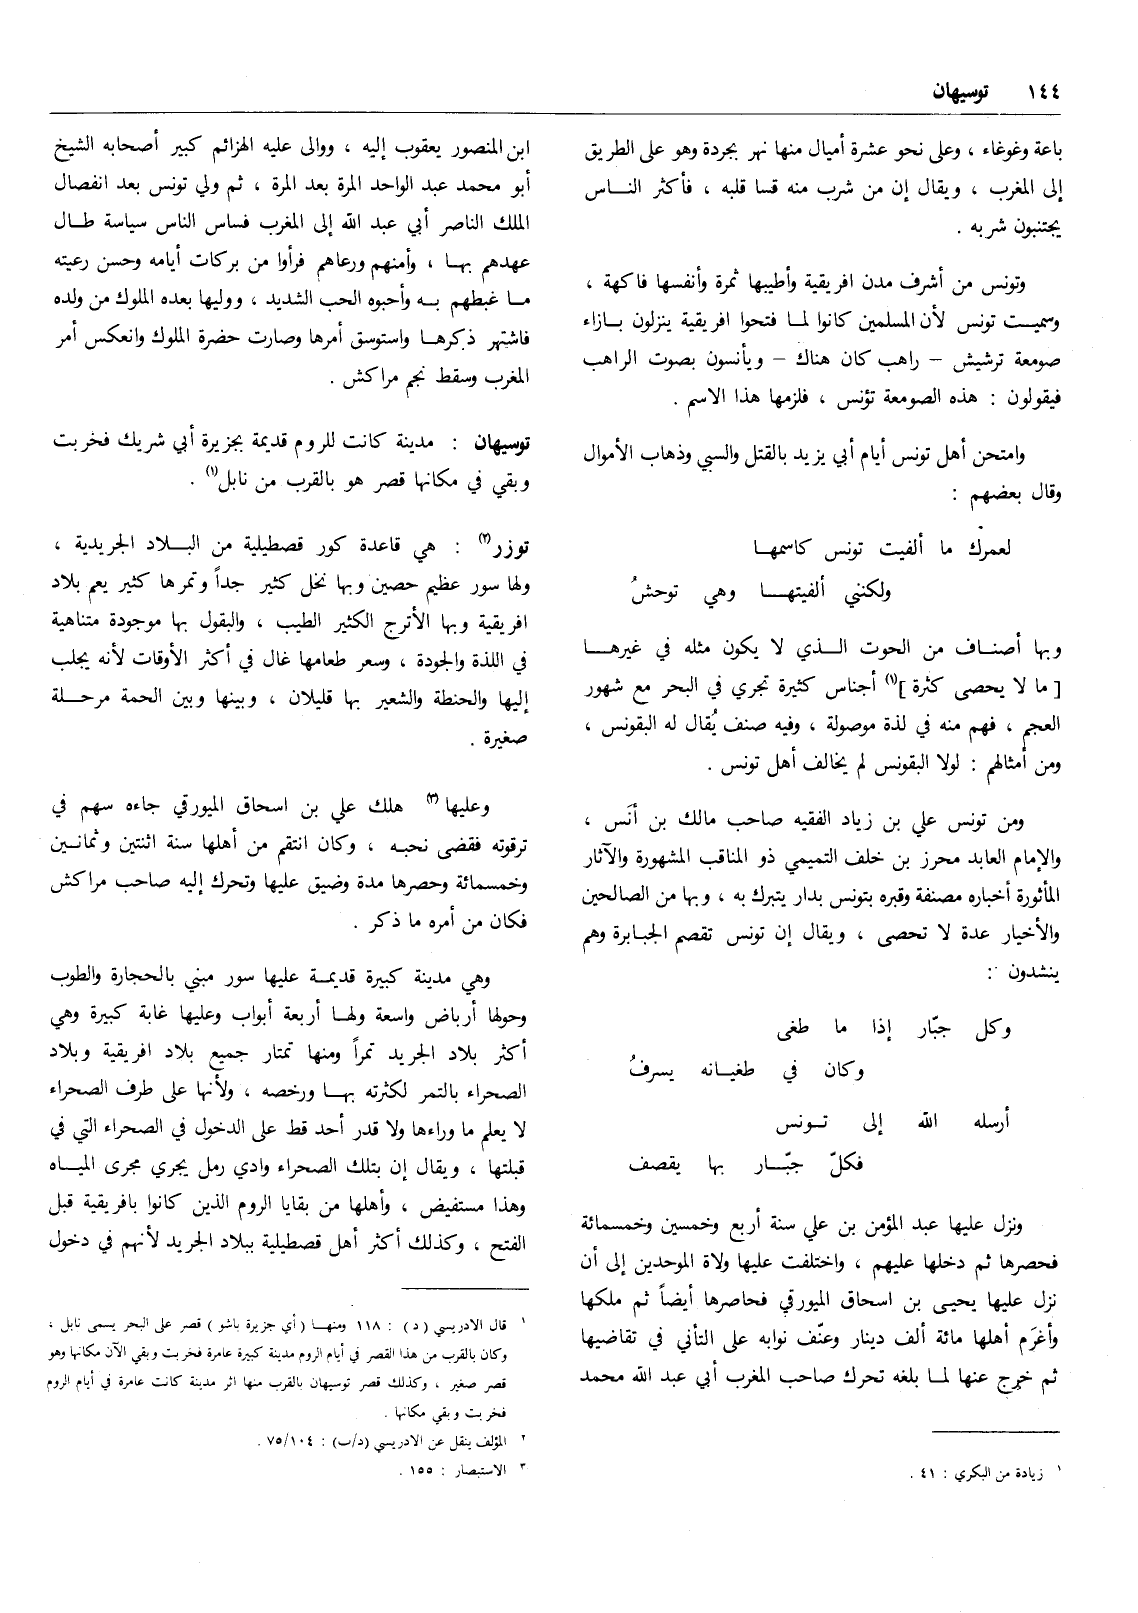 ١٤٤ توسيهان
باعة وغوغاء ، وعلى نحو عشرة أميال منها نهر بجردة وهو على الطريق
إلى المغرب ، ويقال إن من شرب منه قسا قلبه ، فأكثر النـــاس
يجتنبون شربه .
وتونس من أشرف مدن افريقية وأطيبها ثمرة وأنفسها فاكهة ،
وسميـت تونس لأن المسلمين كانوا لمـا فتحوا افريقية ينزلون بـازاء
صومعة ترشيش – راهب كان هناك – ويأنسون بصوت الراهب
فيقولون : هذه الصومعة تؤنس ، فلزمها هذا الاسم .
وامتحن أهل تونس أيام أبي يزيد بالقتل والسبي وذهاب الأموال
وقال بعضهم :
لعمرك ما ألفيت تونس كاسمهـا
ولكنني ألفيتهـــا وهي توحشُ
وبها أصنـاف من الحوت الـــذي لا يكون مثله في غيرهـــا
[ ما لا يحصى كثرة ](١) أجناس كثيرة تجري في البحر مع شهور
العجم ، فهم منه في لذة موصولة ، وفيه صنف يُقال له البقونس ،
ومن أمثالهم : لولا البقونس لم يخالف أهل تونس .
ومن تونس علي بن زياد الفقيه صاحب مالك بن أنَس ،
والإمام العابد محرز بن خلف التميمي ذو المناقب المشهورة والآثار
المأثورة أخباره مصنفة وقبره بتونس بدار يتبرك به ، وبها من الصالحين
والأخيار عدة لا تحصى ، ويقال إن تونس تقصم الجبابرة وهم
ينشدون :
وكل جبّار إذا ما طغى
وكان في طغيـانه يسرفُ
أرسله الله إلى تـونس
فكلّ جبّـــار بها يقصف
ونزل عليها عبد المؤمن بن علي سنة أربع وخمسين وخمسمائة
فحصرها ثم دخلها عليهم ، واختلفت عليها ولاة الموحدين إلى أن
نزل عليها يحيـى بن اسحاق الميورقي فحاصرها أيضاً ثم ملكها
وأغرَم أهلها مائة ألف دينار وعنّف نوابه على التأني في تقاضيها
ثم خرج عنها لمـا بلغه تحرك صاحب المغرب أبي عبد الله محمد
١ زيادة من البكري : ٤١ .
ابن المنصور يعقوب إليه ، ووالى عليه الهزائم كبير أصحابه الشيخ
أبو محمد عبد الواحد المرة بعد المرة ، ثم ولي تونس بعد انفصال
الملك الناصر أبي عبد الله إلى المغرب فساس الناس سياسة طـال
عهدهم بهـا ، وأمنهم ورعاهم فرأوا من بركات أيامه وحسن رعيته
مـا غبطهم بـه وأحبوه الحب الشديد ، ووليها بعده الملوك من ولده
فاشتهر ذكرهـا واستوسق أمرها وصارت حضرة الملوك وانعكس أمر
المغرب وسقط نجم مراكش .
توسيهان : مدينة كانت للروم قديمة بجزيرة أبي شريك فخربت
وبقي في مكانها قصر هو بالقرب من نابل(١) .
توزر(٢) : هي قاعدة كور قصطيلية من البـلاد الجريدية ،
ولها سور عظيم حصين وبها نخل كثير جداً وتمرها كثير يعم بلاد
افريقية وبها الأترج الكثير الطيب ، والبقول بها موجودة متناهية
في اللذة والجودة ، وسعر طعامها غال في أكثر الأوقات لأنه يجلب
إليها والحنطة والشعير بها قليلان ، وبينها وبين الحمة مرحـلـة
صغيرة .
وعليها(٣) هلك علي بن اسحاق الميورقي جاءه سهم في
ترقوته فقضى نحبـه ، وكان انتقم من أهلها سنة اثنتين وثمانـين
وخمسمائة وحصرها مدة وضيق عليها وتحرك إليه صاحب مراكش
فكان من أمره ما ذكر .
وهي مدينة كبيرة قديمـة عليها سور مبني بالحجارة والطوب
وحولها أرباض واسعة ولهـا أربعة أبواب وعليها غابة كبيرة وهي
أكثر بلاد الجريد تمراً ومنها تمتار جميع بلاد افريقية وبلاد
الصحراء بالتمر لكثرته بهـا ورخصه ، ولأنها على طرف الصحراء
لا يعلم ما وراءها ولا قدر أحد قط على الدخول في الصحراء التي في
قبلتها ، ويقال إن بتلك الصحراء وادي رمل يجري مجرى الميـاه
وهذا مستفيض ، وأهلها من بقايا الروم الذين كانوا بافريقية قبل
الفتح ، وكذلك أكثر أهل قصطيلية ببلاد الجريد لأنهم في دخول
١ قال الادريسي ( د ) : ١١٨ ومنهـا ( أي جزيرة باشو ) قصر على البحر يسمى نابل ،
وكان بالقرب من هذا القصر في أيام الروم مدينة كبيرة عامرة فخربت وبقي الآن مكانها وهو
قصر صغير ، وكذلك قصر توسيهان بالقرب منها اثر مدينة كانت عامرة في أيام الروم
فخربت وبقي مكانها .
٢ المؤلف ينقل عن الادريسي (د/ب) : ٧٥/١٠٤ .
٣ الاستبصار : ١٥٥ .